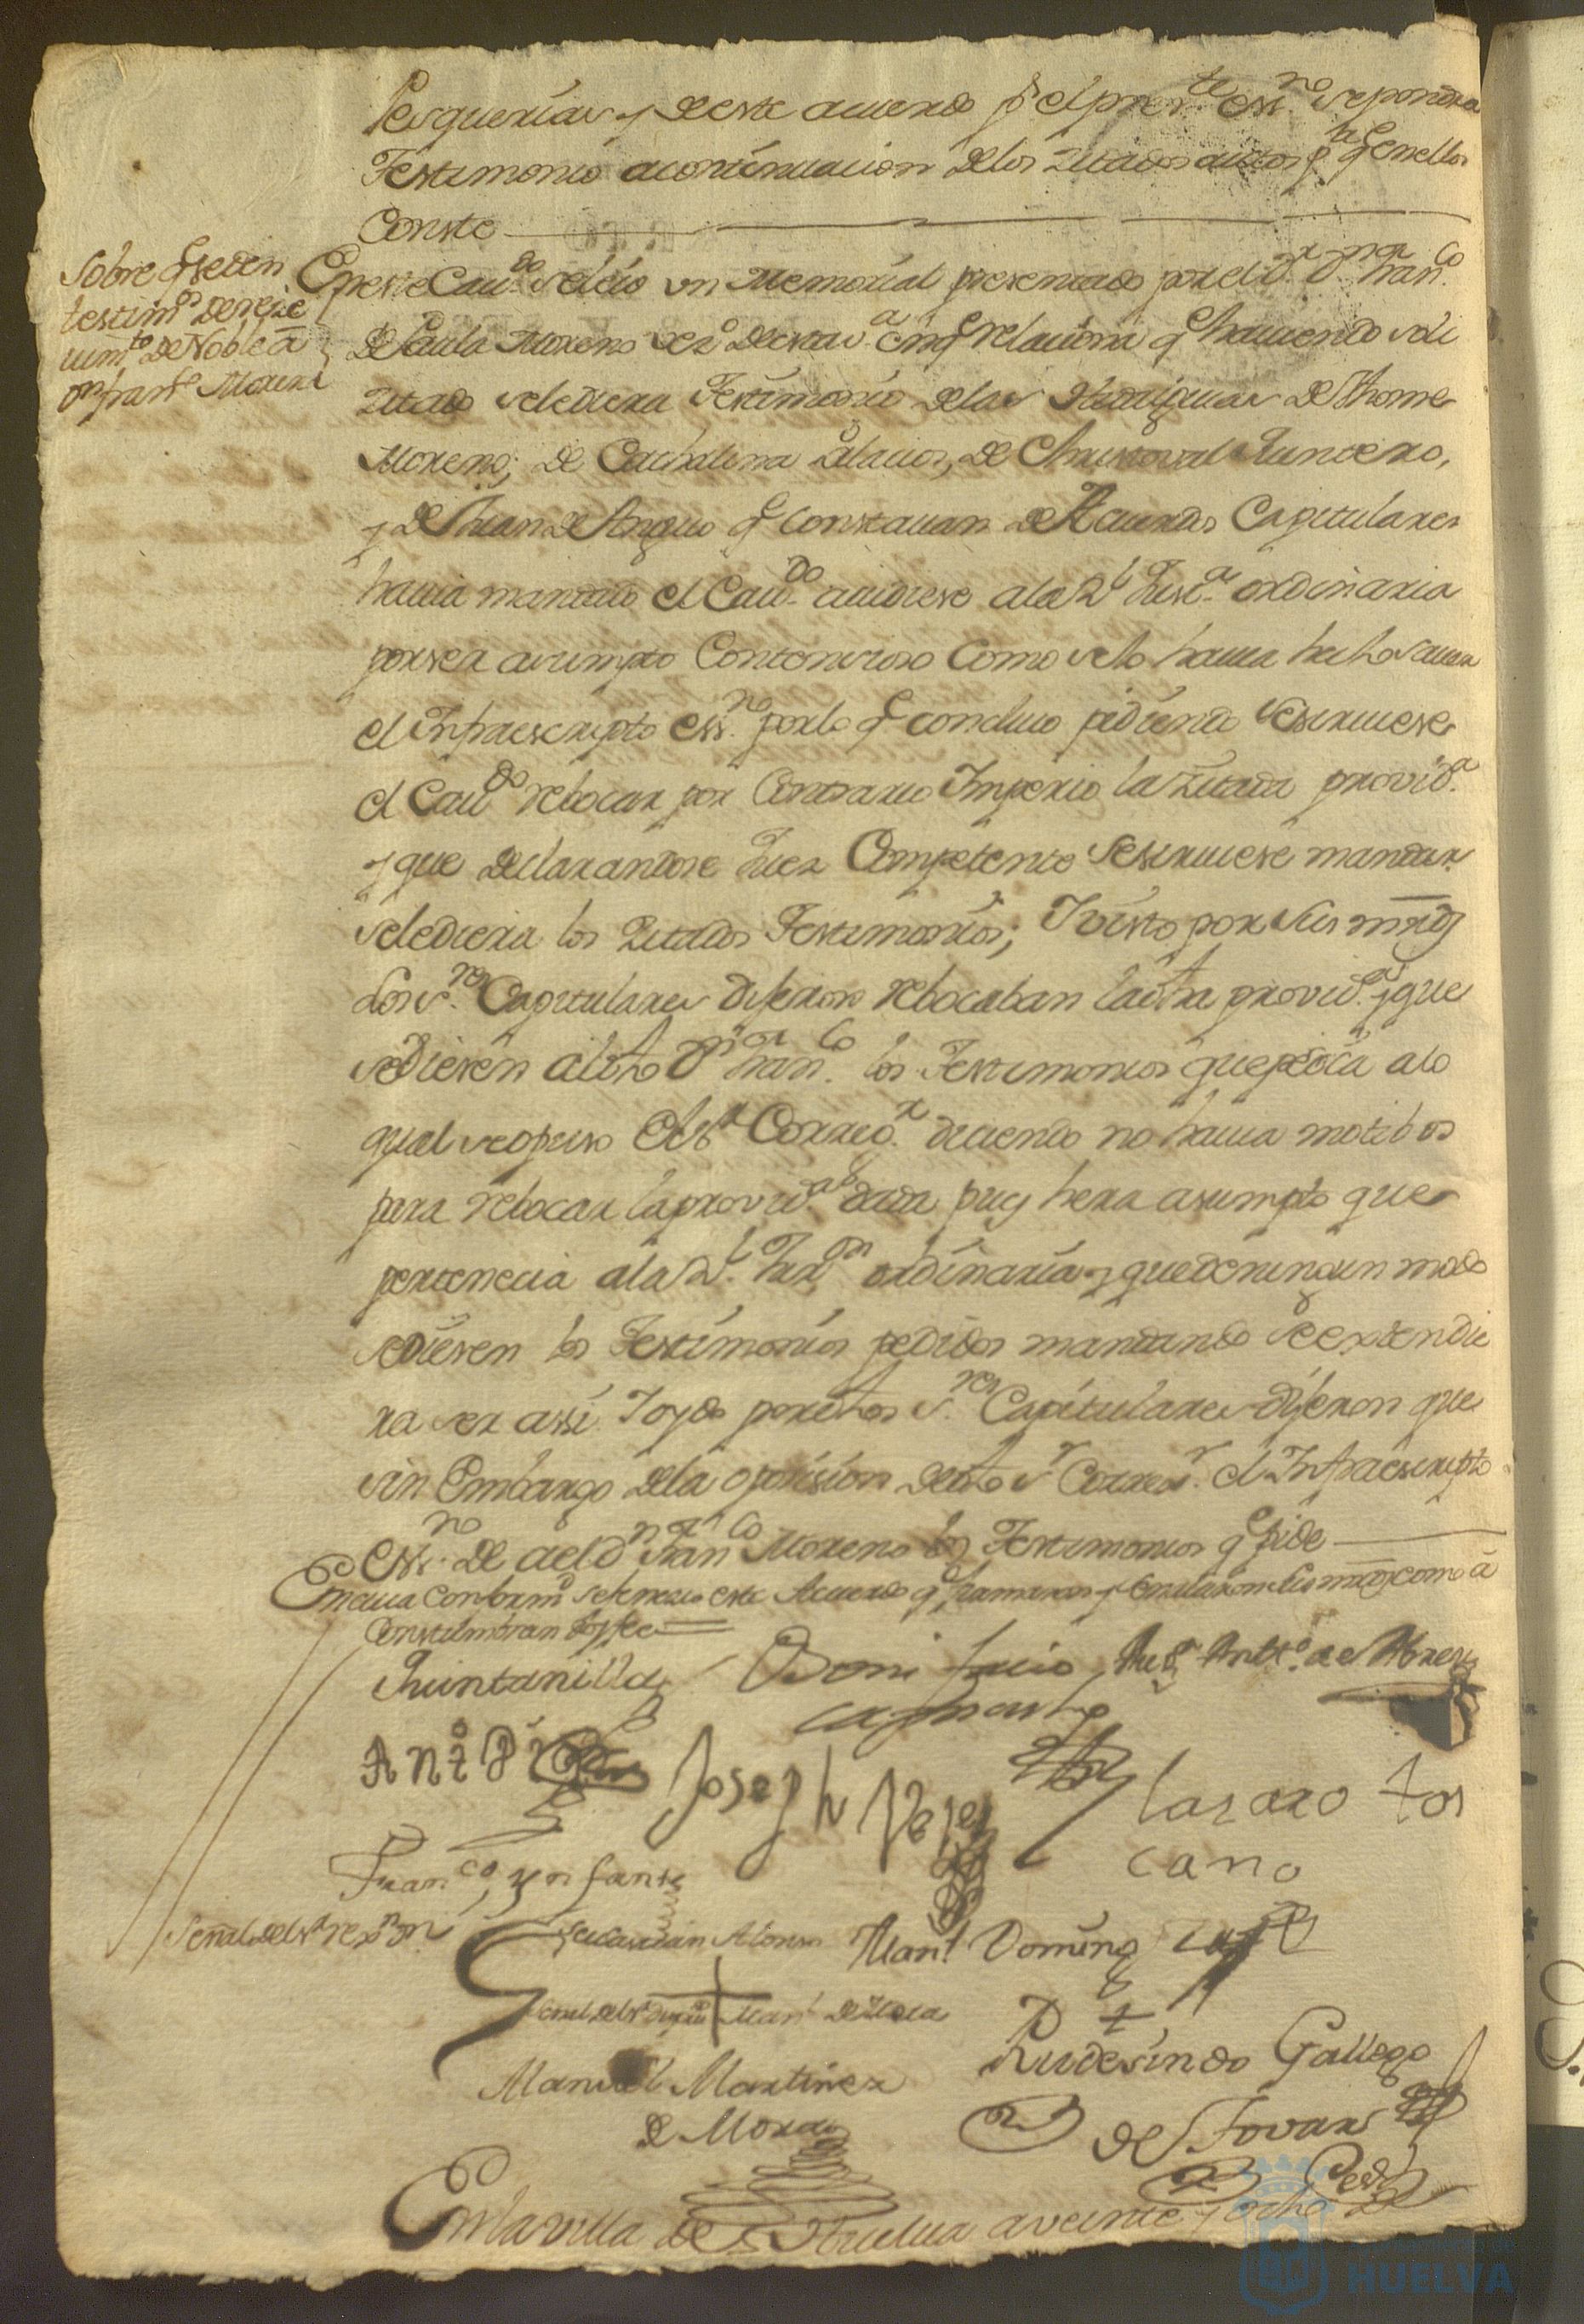 Pesquerias, y de este acuerdo p.r el pres.te ess.no se pondra
Testimonio a continuacion de los zitados autos p.a q.e en ellos
Conste
Sobre q.e se den
testim.os de reze
uim.to de Nobleza
Dn fran.co Moreno
En este Cau.do se leio un Memorial presentado por el D.r D.n Juan Fran.co
de Paula Moreno vez.o de esta v.a en q.e relaciona q.e hauiendo soli
zitado se le diera Testimonio de las Hidalguias de Thome
Moreno; de Cathalina Palacios, de Christoval Quintero,
y de Juan de Angulo q.e constauan de Acuerdos Capitulares
hauia mandado el Cau.do acudiese a la R.l Just.a ordinaria
por ser asumpto Contencioso como se lo hauia hecho sauer
el Infraescripto ess.no por lo q.e concluio pidiendo se siruiese
el Cau.do rebocar por Contrario Imperio la zitada provid.a
y que declarandose Juez Competente se siruiese mandar
se le diera los zitados Testimonios; Y visto por sus mrds
Los s.res Capitulares dijeron rebocaban la dha provid.a y que
se diesen al dho D.n Juan Fran.co los Testimonios que pedia a lo
qual se opuso el S.r Correg.r deciendo no hauia motibos
para rebocar la provid.a dada pues hera asumpto que
pertenecia a la R.l Jurd.on ordinaria, y que de ningun modo
se diesen los Testimonios pedidos mandando se extendie
ra ser assi. Y oydo por dhos s.res Capitulares dijeron que
sin Embargo de la oposision de dho s.r Correg.r el Infraescripto
Ess.no de a el D.n Juan Fran.co Moreno los Testimonios q.e pide
En cuia conform.d se fenecio este Acuerdo q.e firmaron y señalaron sus mrds como a
Constumbran doy fee
Quintanilla Bonifacio
Ant.o de
Ant.o Joseph Perez lazaro tos
cano
Fran.co ynfante
Señal del s.r rex.or
Sebastian Alonso Man.l Doming
Señal del s.r diput.do Man.l de Mora
Manuel Martinez
de Mora
Rudesindo Gallego
de Tovar
En la villa de Huelua a veinte y ocho de
HUELVA